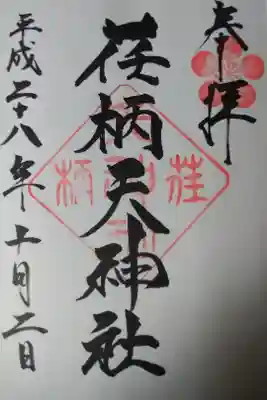 奉拝
荏柄天神社
平成二十八年十月二日